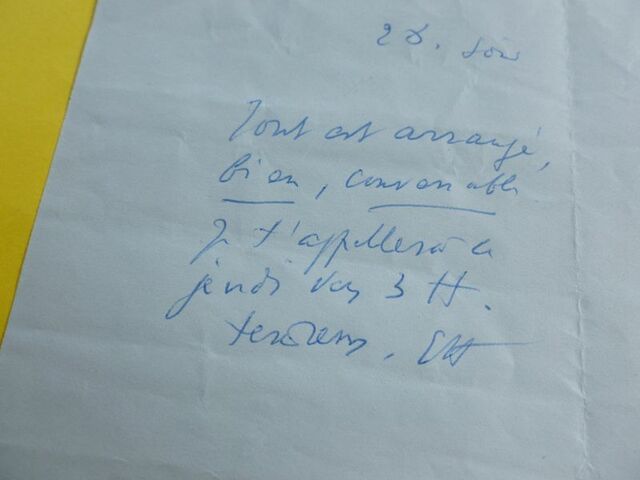 28. Soir
Tout est arrangé,
bien, convenable
Je t'appellerai ce
jeudi vers 3 H.
tendresse,